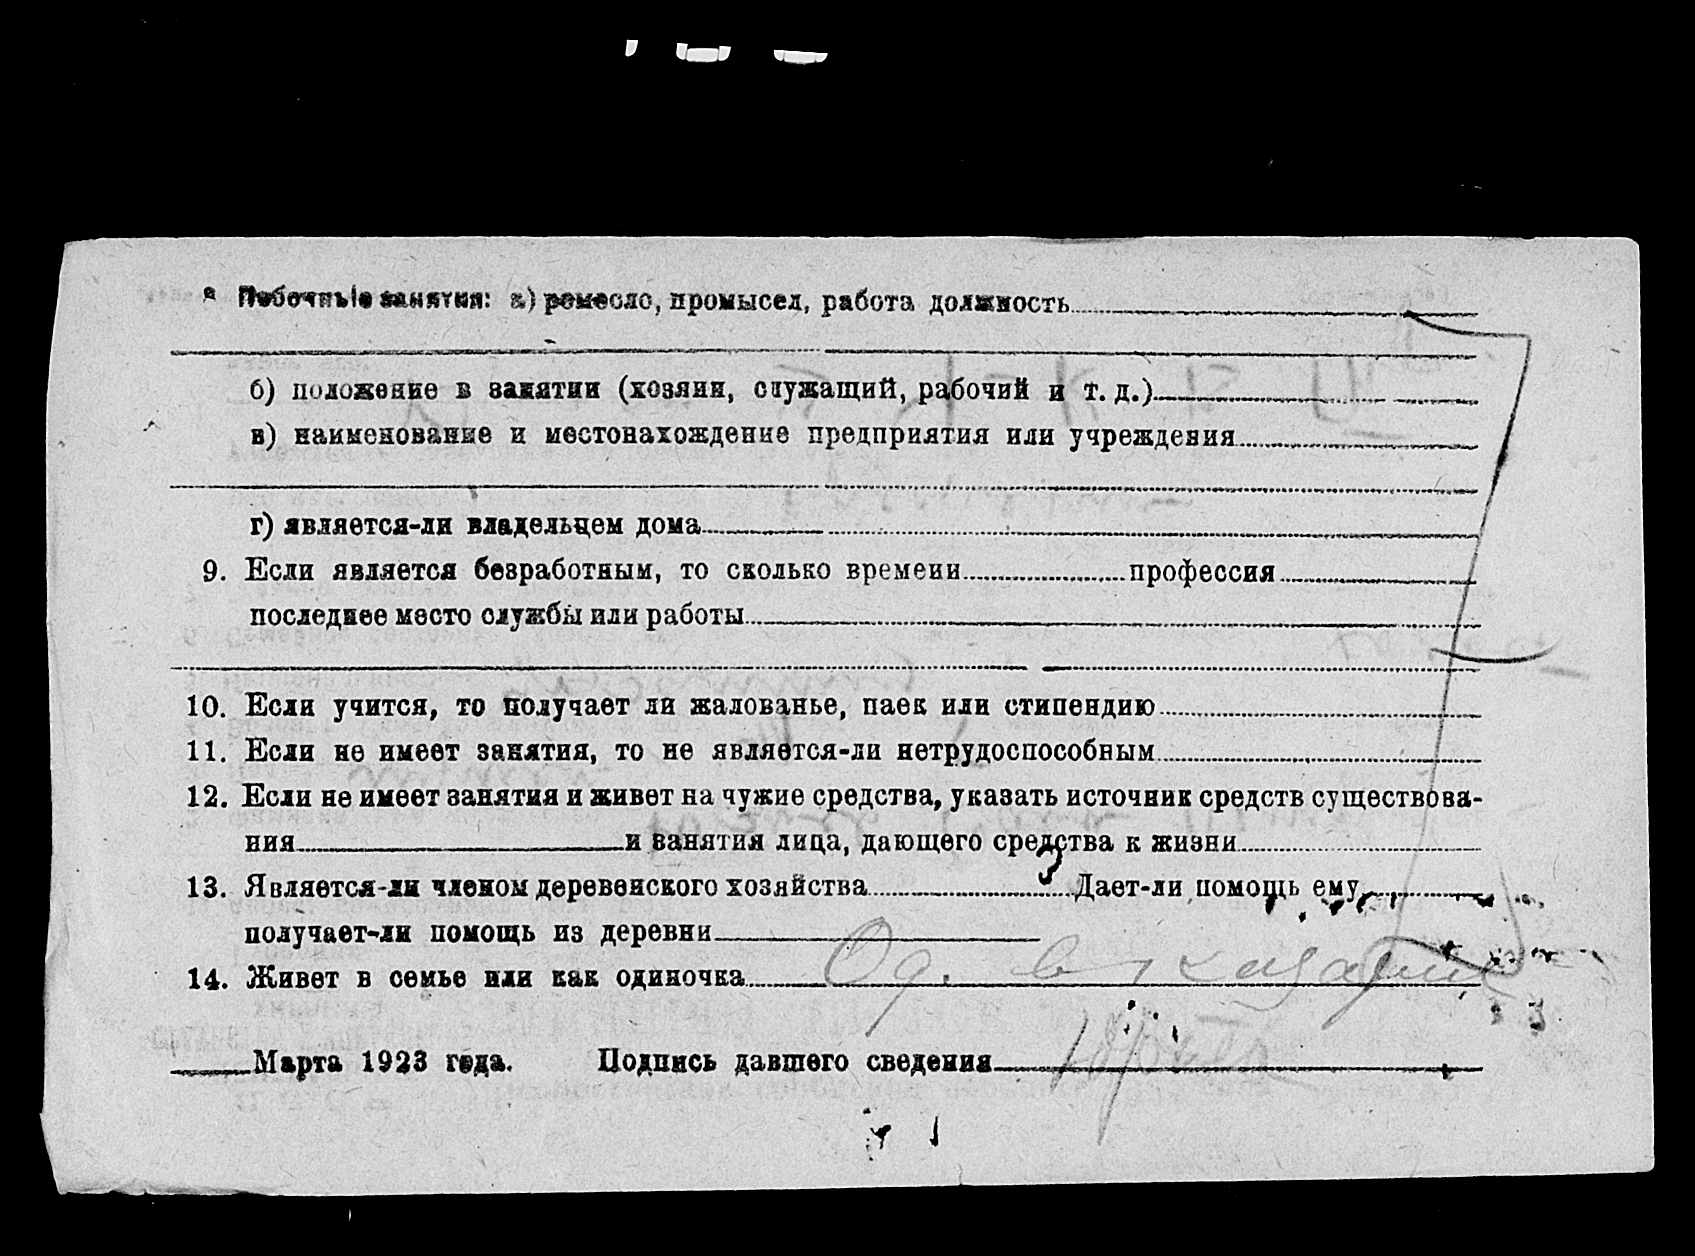 Побочные занятия: а) ремесло, промысел, работа должность
б) положение в занятии (хозяин, служащий, рабочий и т. д.)
в) наименование и местонахождение предприятия или учреждения
г) является-ли владельцем дома
9. Если является безработным, то сколько времени профессия
последнее место службы или работы
10. Если учится, то получает ли жалованье, паек или стипендию
11. Если не имеет занятия, то не является-ли нетрудоспособным
12. Если не имеет занятия и живет на чужие средства, указать источник средств существова-
ния и занятия лица, дающего средства к жизни
13. Является-ли членом деревенского хозяйства Дает-ли помощь ему
получает-ли помощь из деревни
14. Живет в семье или как одиночка Од. в
Марта 1923 года. Подпись давшего сведения